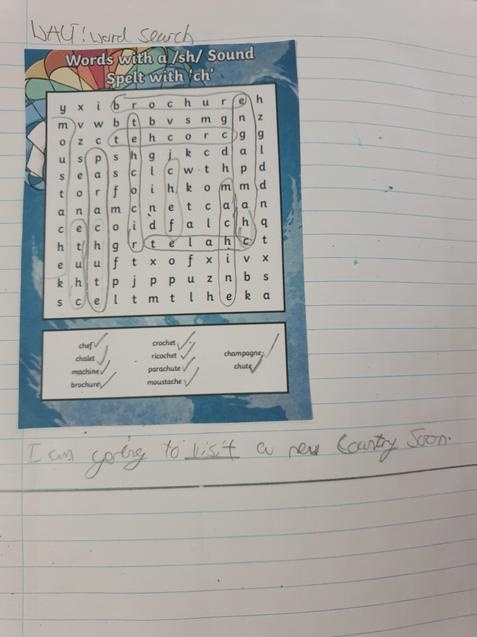 WALT: word search
Words with a /sh/ Sound
Spelt with 'ch'
y x i b r o c h u r e h
m v w b t b v s m g n z
o z c t e h c o r c g g
u s p s h g j k c d a l
s e a s c l c w t h p d
t o r f o i h k o m m d
a n a m c n e t c a a n
c e c o i d f a l c h q
h t h g r t e l a h c t
e u u f t x o f x i v x
k h t p j p p u z n b s
s c e l t m t l h e k a
chef crochet
chalet ricochet champagne
machine parachute chute
brochure moustache
I am going to visit a new Country Soon.